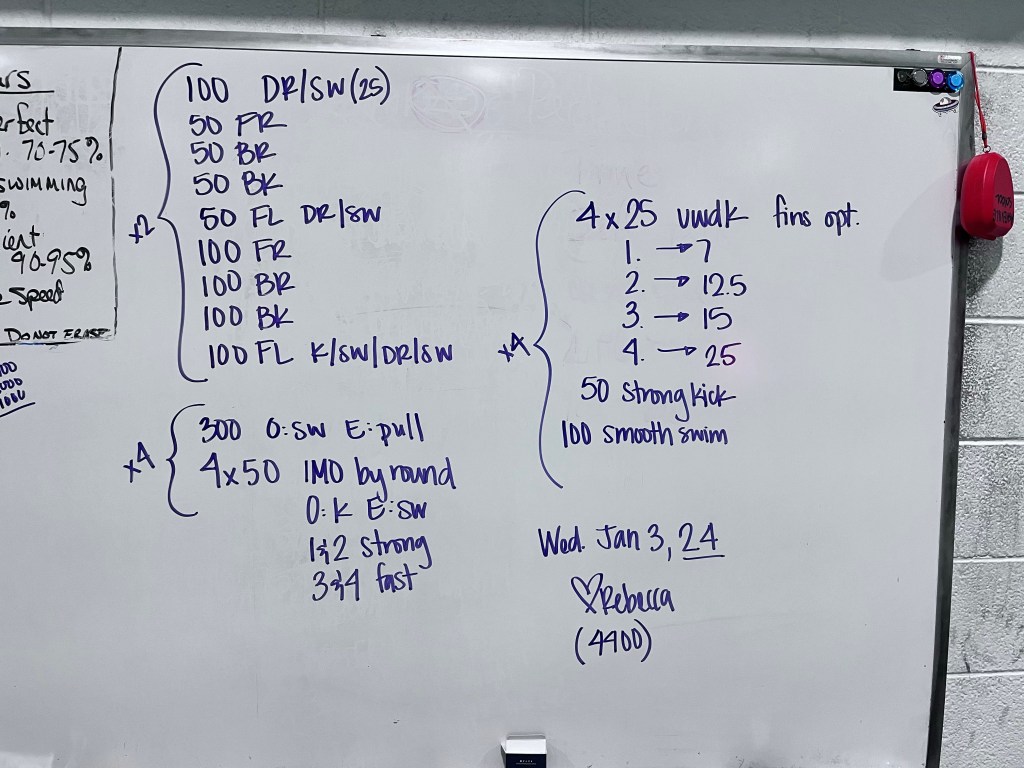 rs
erfect
70-75%
swimming
%
ient
90-95%
Speed
DO NOT ERASE
000
1000
x2
100 DR/SW (25)
50 FR
50 BR
50 BK
50 FL DR/SW
100 FR
100 BR
100 BK
100 FL K/SW/DR/SW
x4
300 O:SW E:pull
4x50 IMO by round
O:K E:SW
1&2 strong
3&4 fast
x4
4x25 uwdk fins opt.
1. → 7
2. → 12.5
3. → 15
4. → 25
50 strong kick
100 smooth swim
Wed. Jan 3, 24
♡Rebecca
(4400)